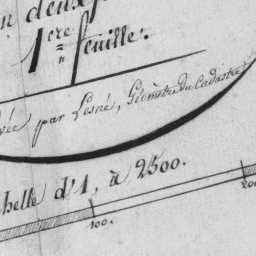 en deux
1ère feuille.
vée par Lesné, Géomètre du Cadastre
helle d'1, à 2500.
100. 200